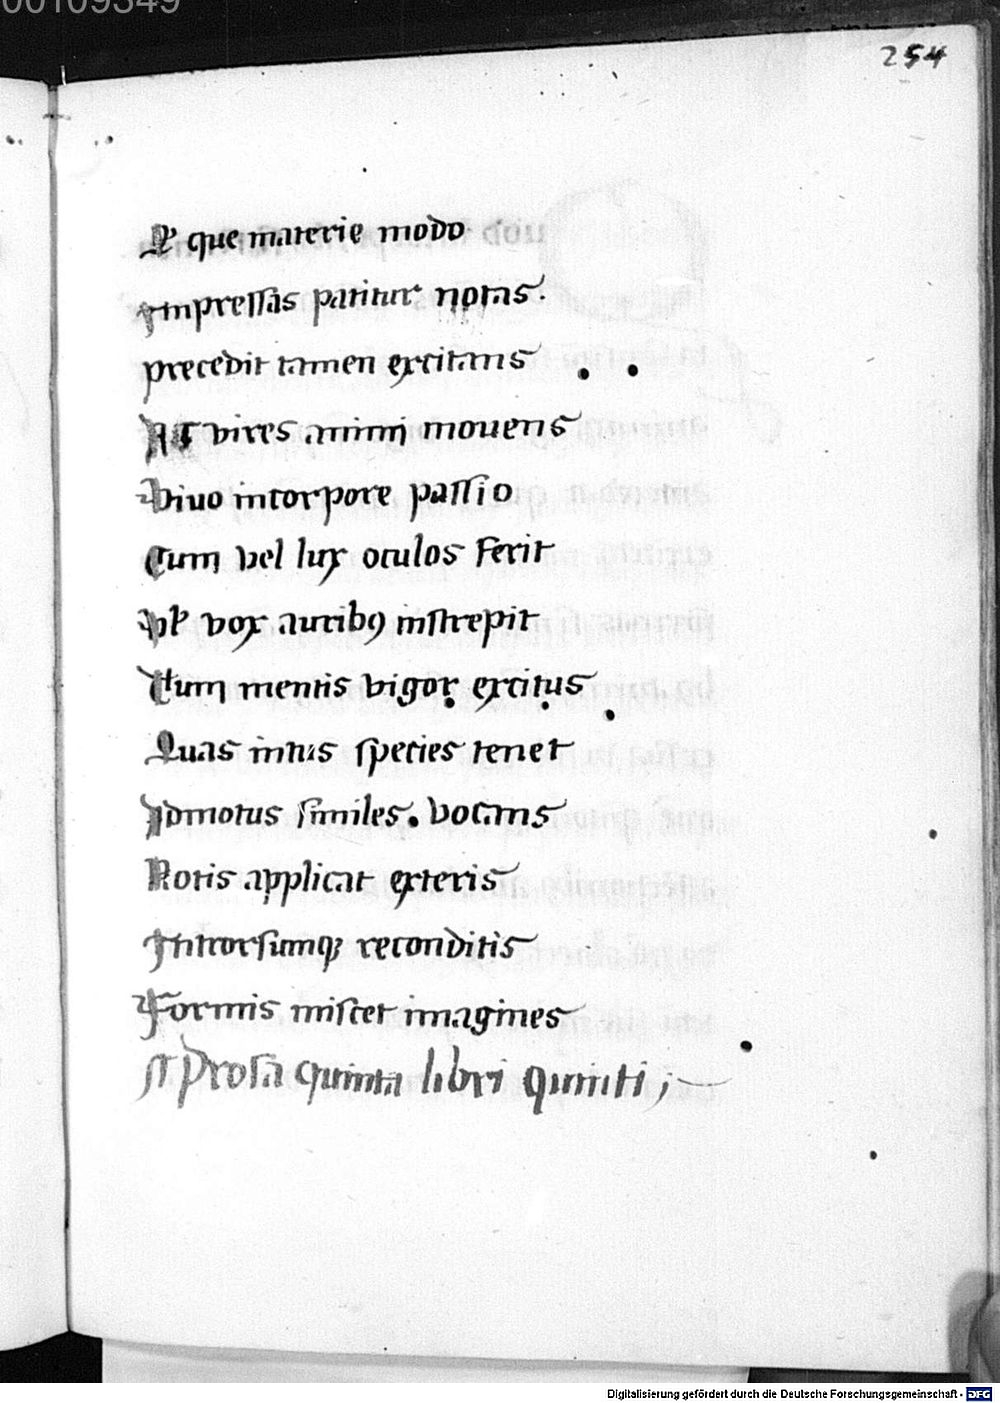 00109349
254
Qͣ que materie modo
Impressas patitur notas.
precedit tamen excitans
Ac vires animi mouens
Viuo incorpore passio
Cum vel lux oculos ferit
Vl vox auribꝯ instrepit
Tum mentis vigor excitus
Quas intus species tenet
Admotus similes. vocans
Notis applicat exteris
Introrsumqꝫ reconditis
Formis miscet imagines
Prosa quinta libri quinti ;
Digitalisierung gefördert durch die Deutsche Forschungsgemeinschaft - DFG